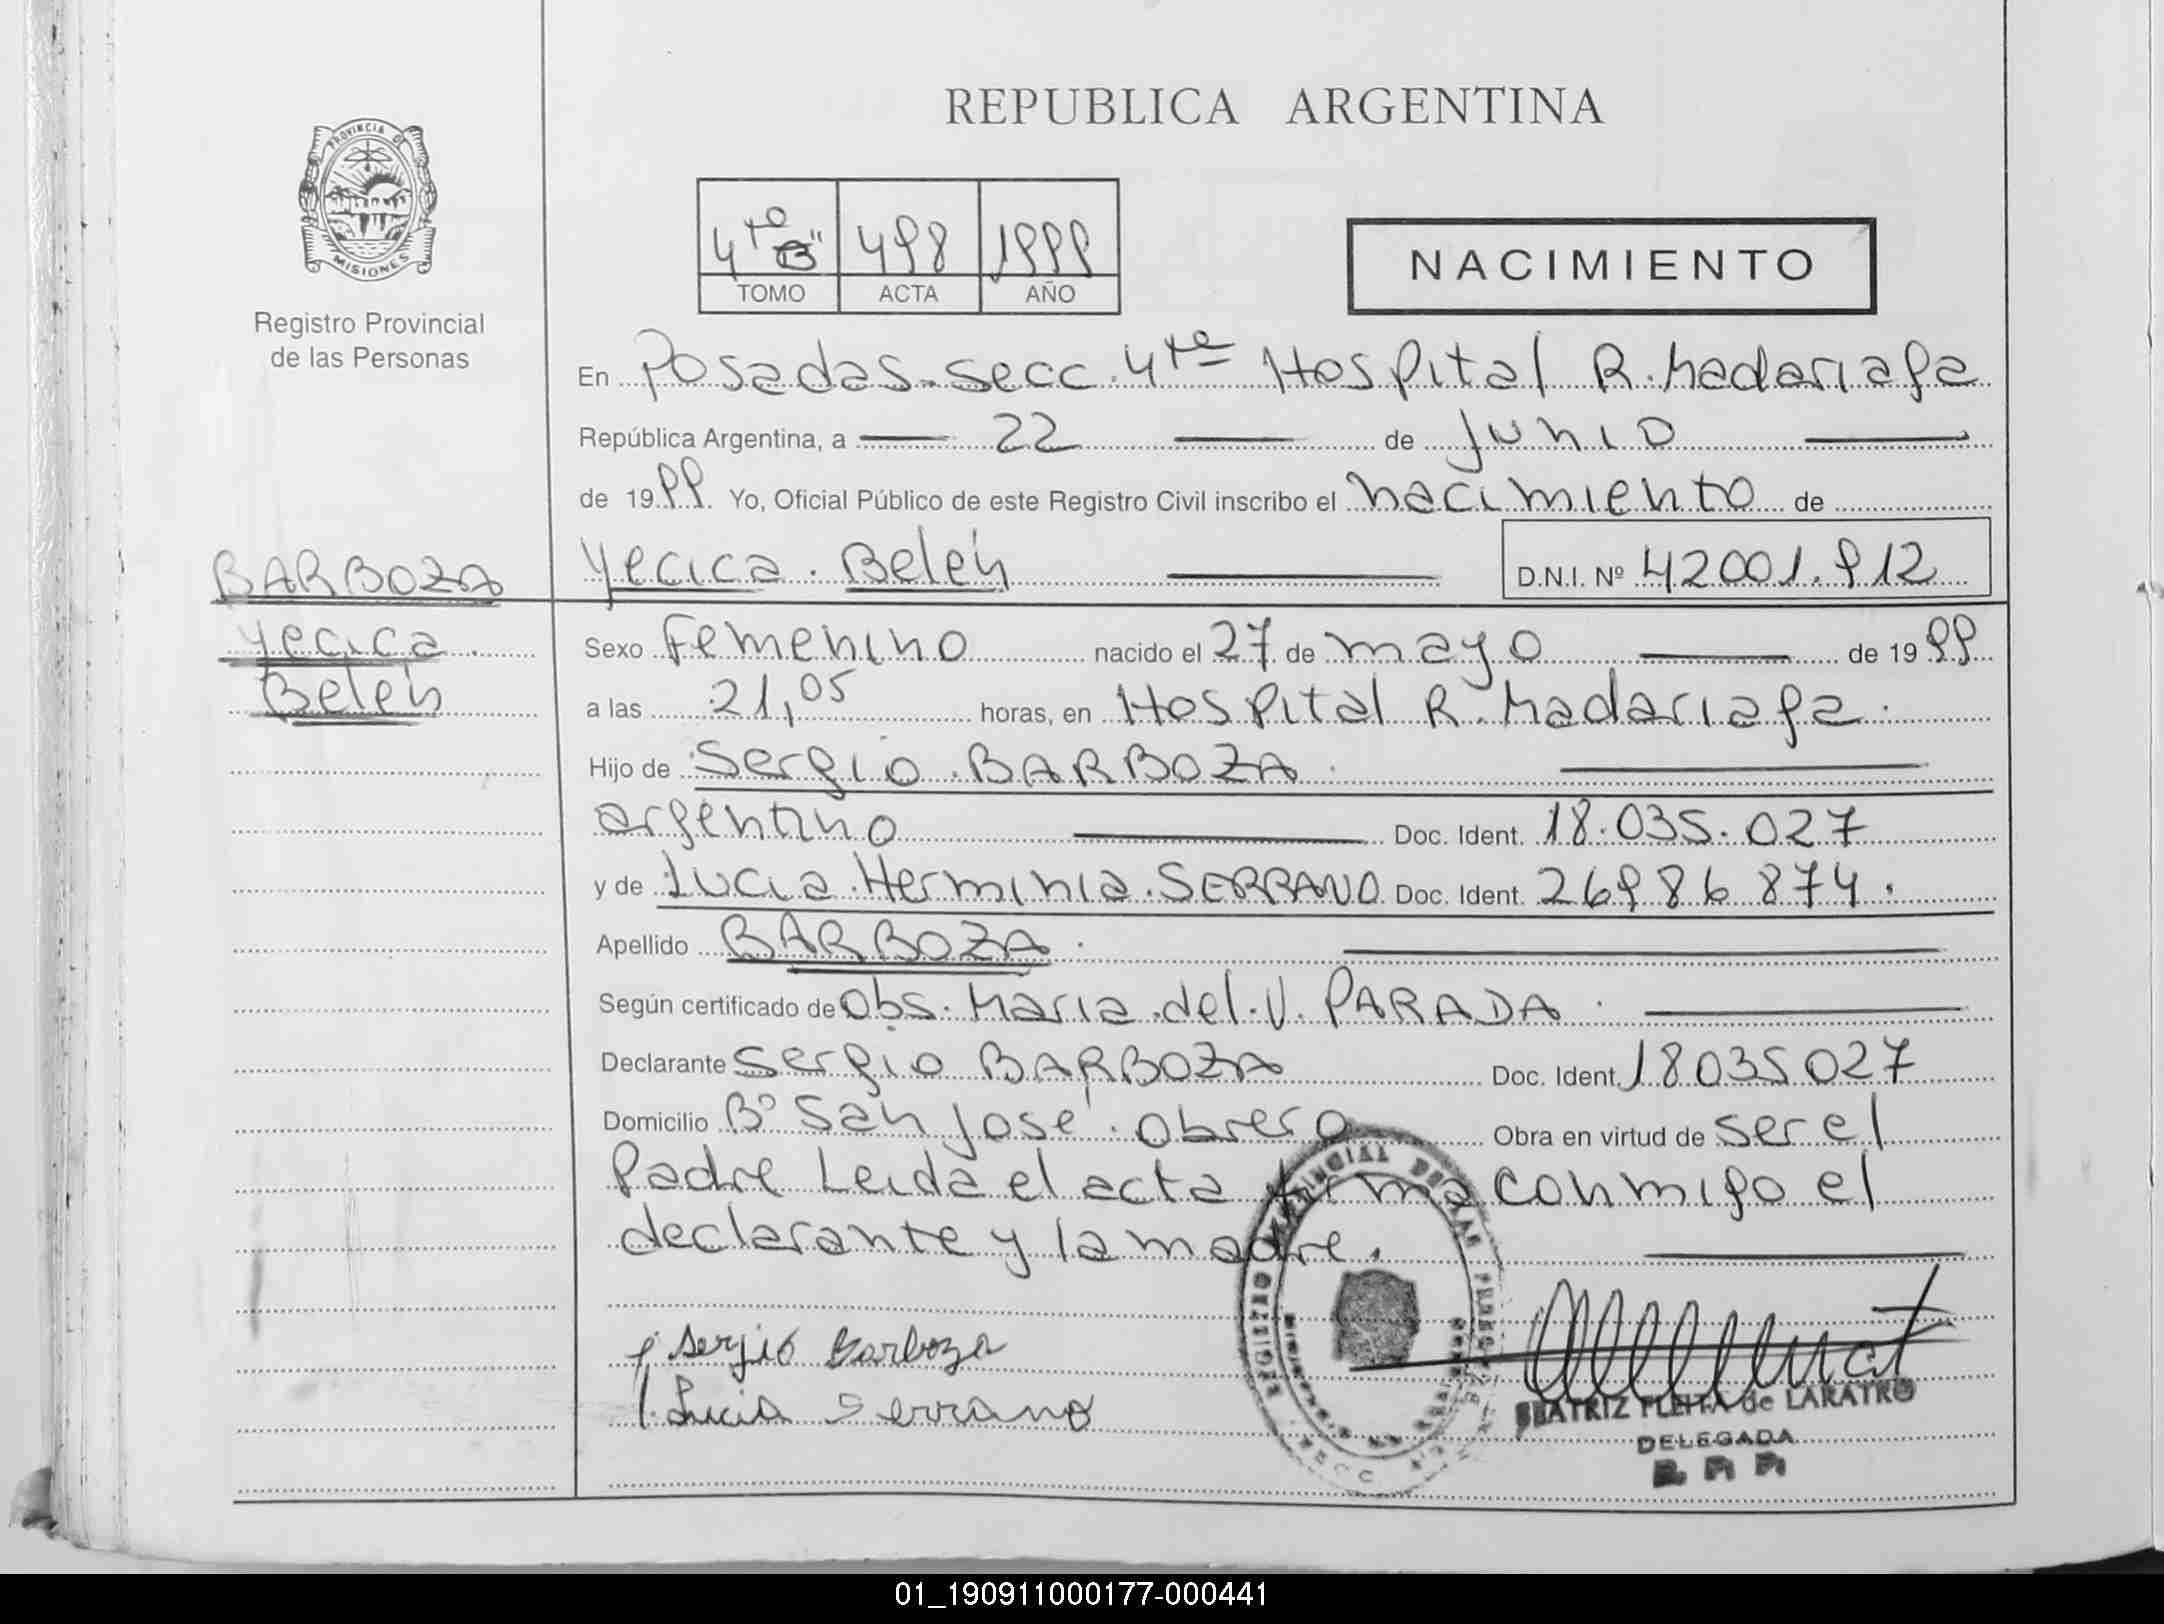 REPUBLICA ARGENTINA
PROVINCIA DE
MISIONES
Registro Provincial
de las Personas
4to "B" 498 1999
TOMO ACTA AÑO
NACIMIENTO
En Posadas. secc. 4ta Hospital R. Madariaga
República Argentina, a 22 de Junio
de 1999. Yo, Oficial Público de este Registro Civil inscribo el nacimiento de
BARBOZA
Yecica.
Belén
Yecica. Belén D.N.I. Nº 42001.912
Sexo Femenino nacido el 27 de mayo de 1999
a las 21,05 horas, en Hospital R. Madariaga.
Hijo de Sergio. BARBOZA.
argentino Doc. Ident. 18.035.027
y de Lucia. Herminia. SERRANO Doc. Ident. 26986874.
Apellido BARBOZA.
Según certificado de Obs. Maria. del. V. PARADA.
Declarante Sergio BARBOZA Doc. Ident. 18035027
Domicilio Bº San José. Obrero Obra en virtud de ser el
Padre Leida el acta firma conmigo el
declarante y la madre.
Sergio Barboza
Lucia Serrano
BEATRIZ FLEITA de LARATRO
DELEGADA
01_190911000177-000441